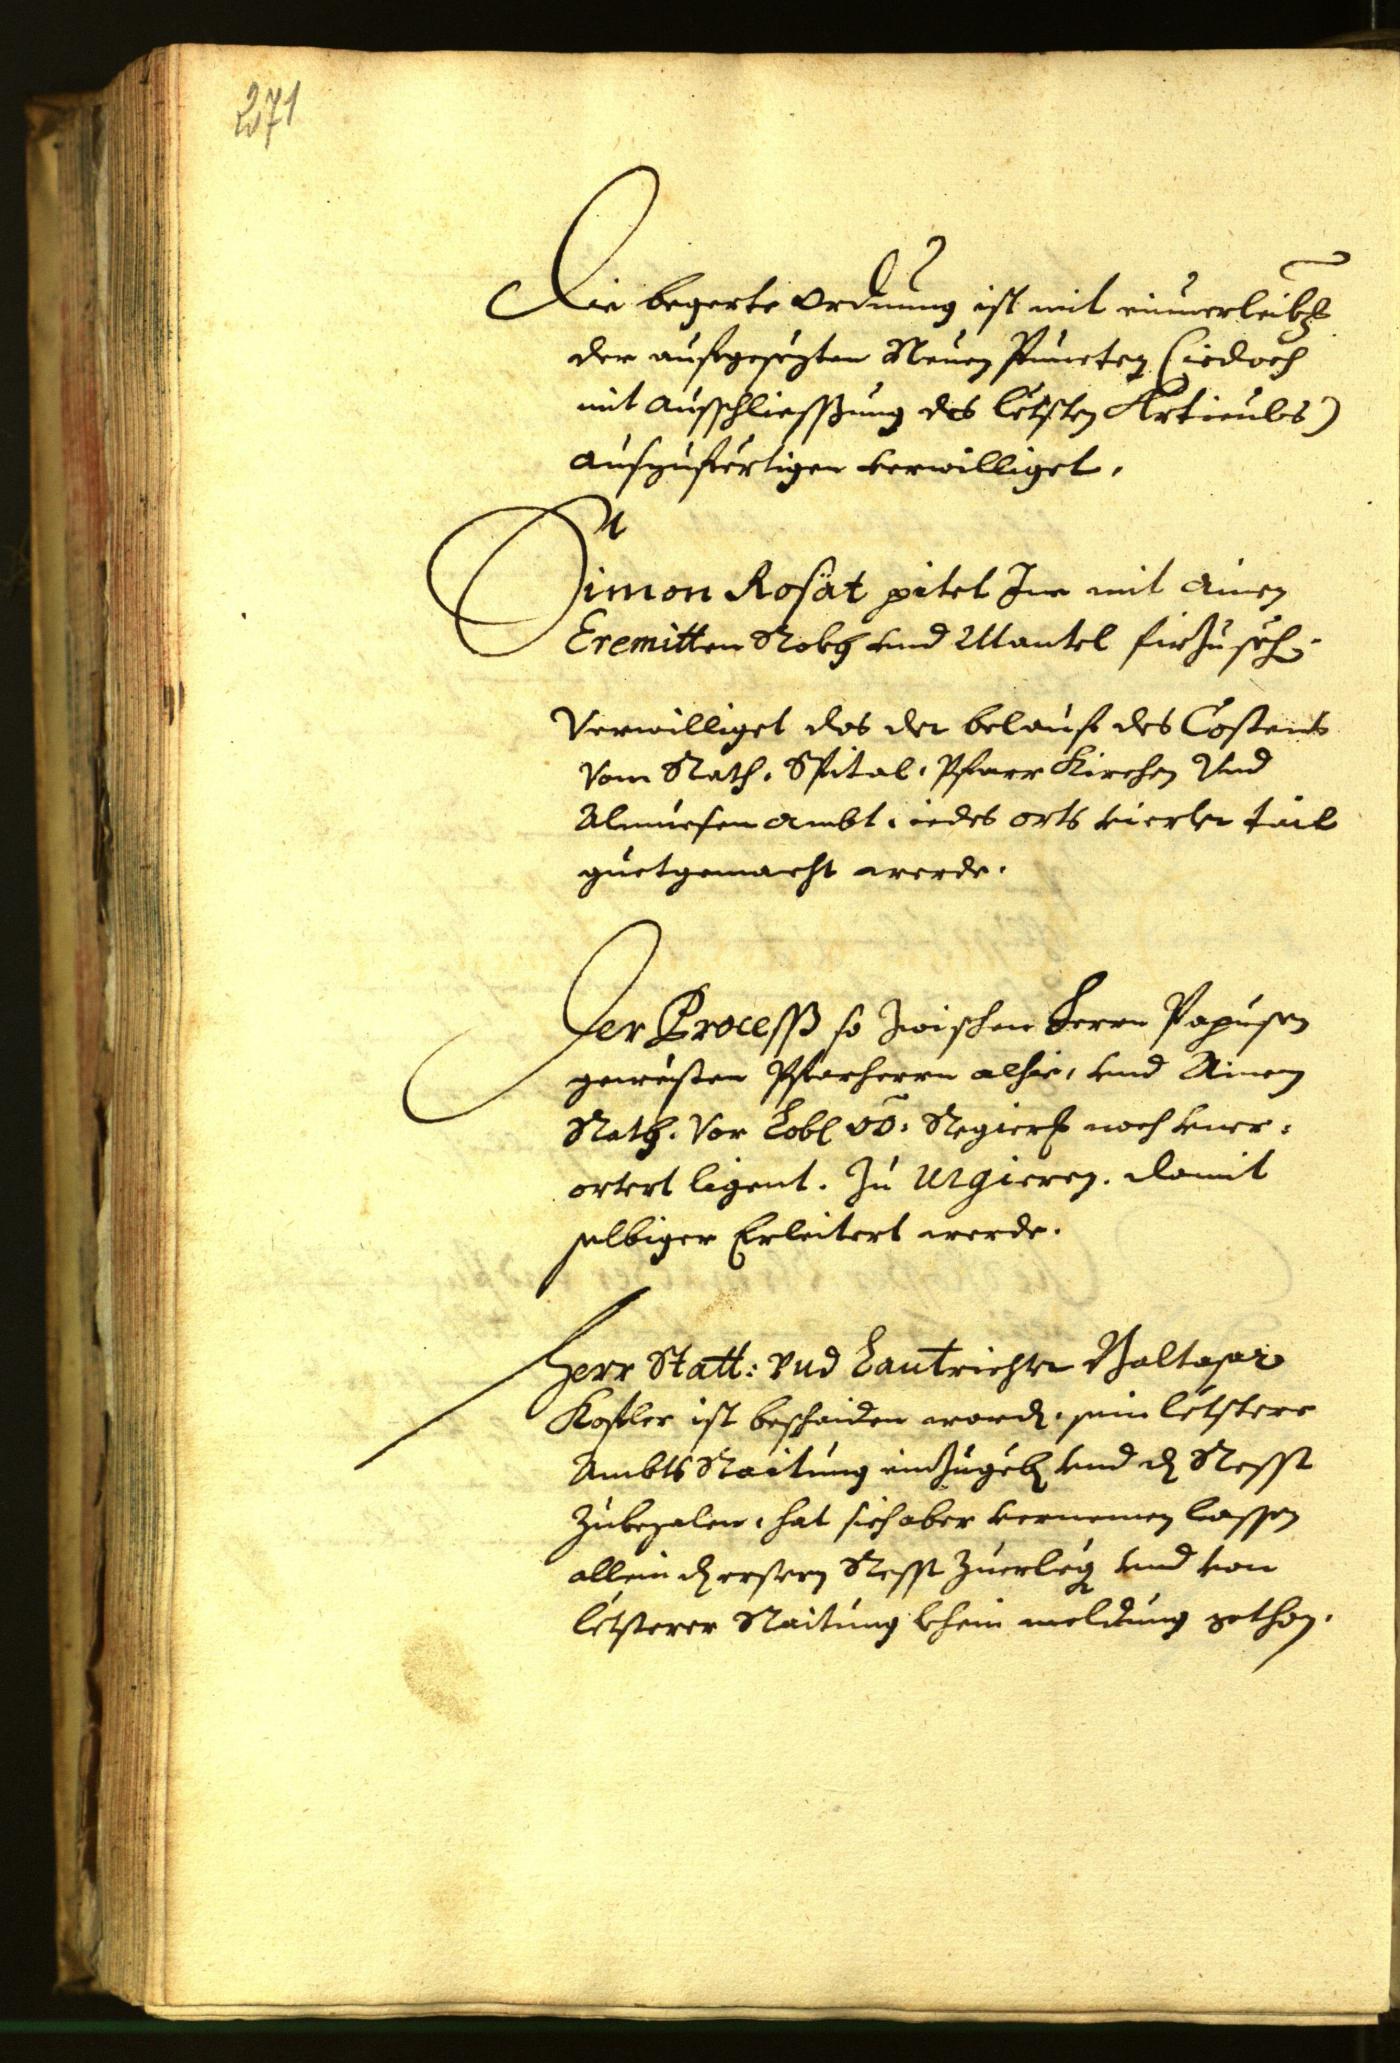 271
Die begerte Ordnung ist mit einverleibg
der aufgesezten Neuen Puncten (iedoch
mit ausschliessung des letsten Articuls)
auszufertigen verwilliget.
Simon Rosat pitet Ine mit ainen
Eremitten Rokh und Mantel firzusech:
Verwilliget das der belauf des Costens
vom Rath. Spital. Pfarr Kirchen Und
Almuesen ambt. iedes orts vierter tail
guetgemacht werde.
Der Process so zwischen Herrn Papusen
gewesten Pfarherrn alhie, und Ainem
Rath. vor Lobl OÖ: Regierg noch uner=
ortert ligent. zu Urgieren. damit
selbiger Erleitert werde.
Herr Statt: und Lantrichter Baltasar
Kostler ist beschaiden word. sein letstere
Ambts Raitung einzugeb und den Resst
zubezalen. hat sich aber vernemen lassen
allein den erstern Resst zuerleg und von
letsterer Raitung khein meldung gethon.